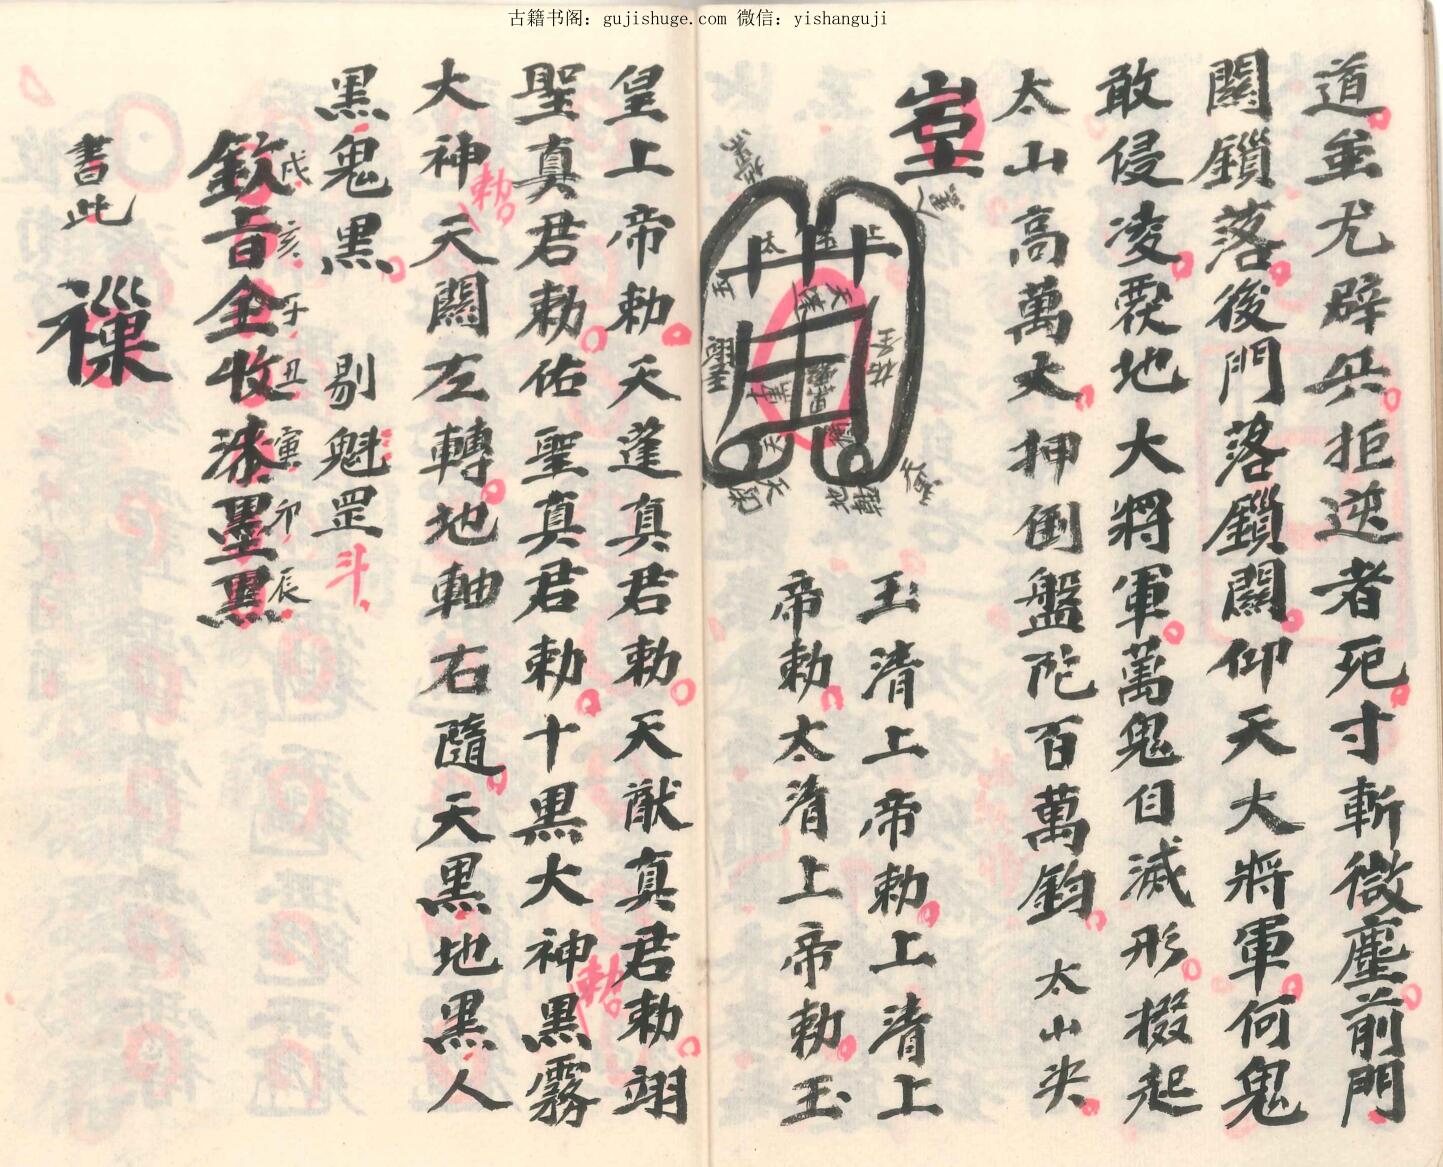 古籍书阁：gujishuge.com 微信：yishanguji
道䖝尤辟兵拒逆者死寸斬微塵前門
關鎖落後門落鎖關仰天大將軍何鬼
敢侵凌覆地大將軍萬鬼自滅形掇起
太山高萬丈押倒盤陀百萬鈞太山尖
玉清上帝勅上清上
帝勅太清上帝勅玉
皇上帝勅天蓬真君勅天猷真君勅翊
聖真君勅佑聖真君勅十黑大神黑霧
大神天關左轉地軸右隨天黑地黑人
勅
勅
黑鬼黑剔魁罡斗
戌亥子丑寅卯辰
欽旨全收漆墨黑
書此